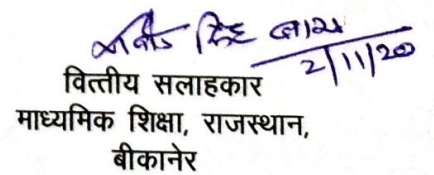 सिंह
2/11/20
वित्तीय सलाहकार
माध्यमिक शिक्षा, राजस्थान,
बीकानेर